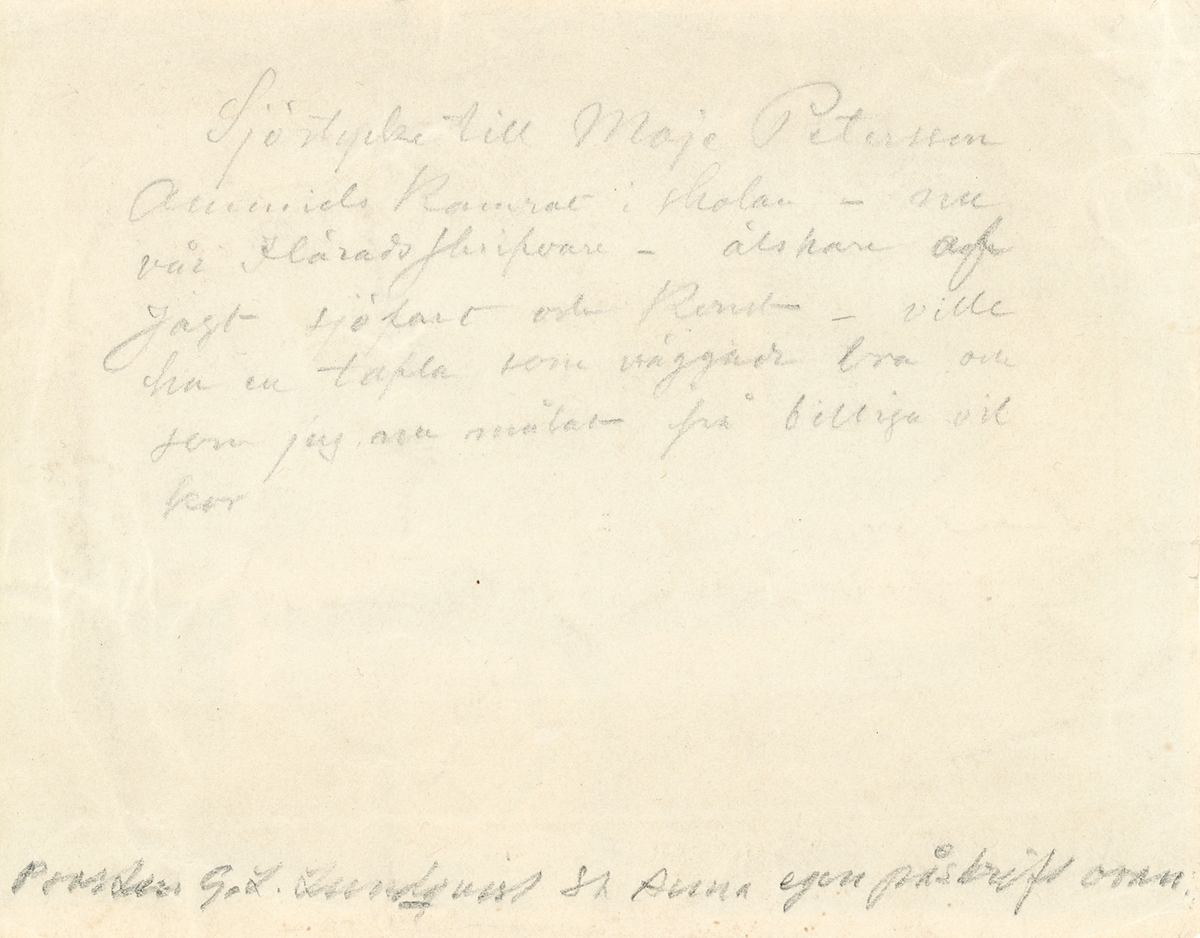 Sjöstycke till Maje Petersson
Kamrat i skolan – nu
vår Häradsskrifvare – älskare af
Jagt sjöfart och Konst – ville
ha en tafla som bra och
som jag nu målat på billiga vil
kor
Prosten G. L. Lundqvist St Anna egen påskrift ovan.